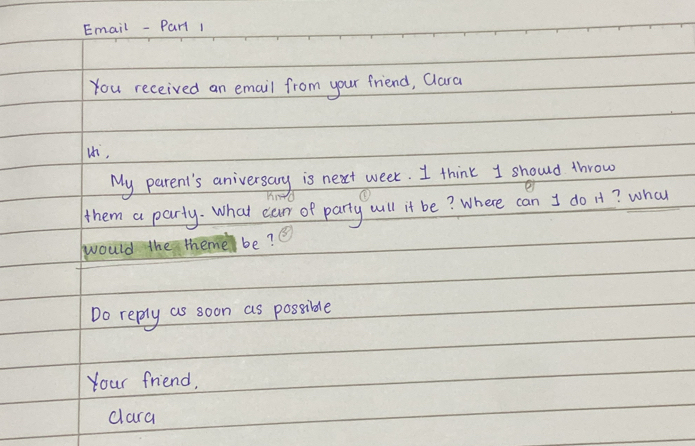 Email - Part 1
You received an email from your friend, Clara
Hi,
My parent's aniversary is next week. I think I should throw
kind ①
them a party. What can of party will it be? Where can I do it? What
②
would the theme be? ③
Do reply as soon as possible
Your friend,
Clara